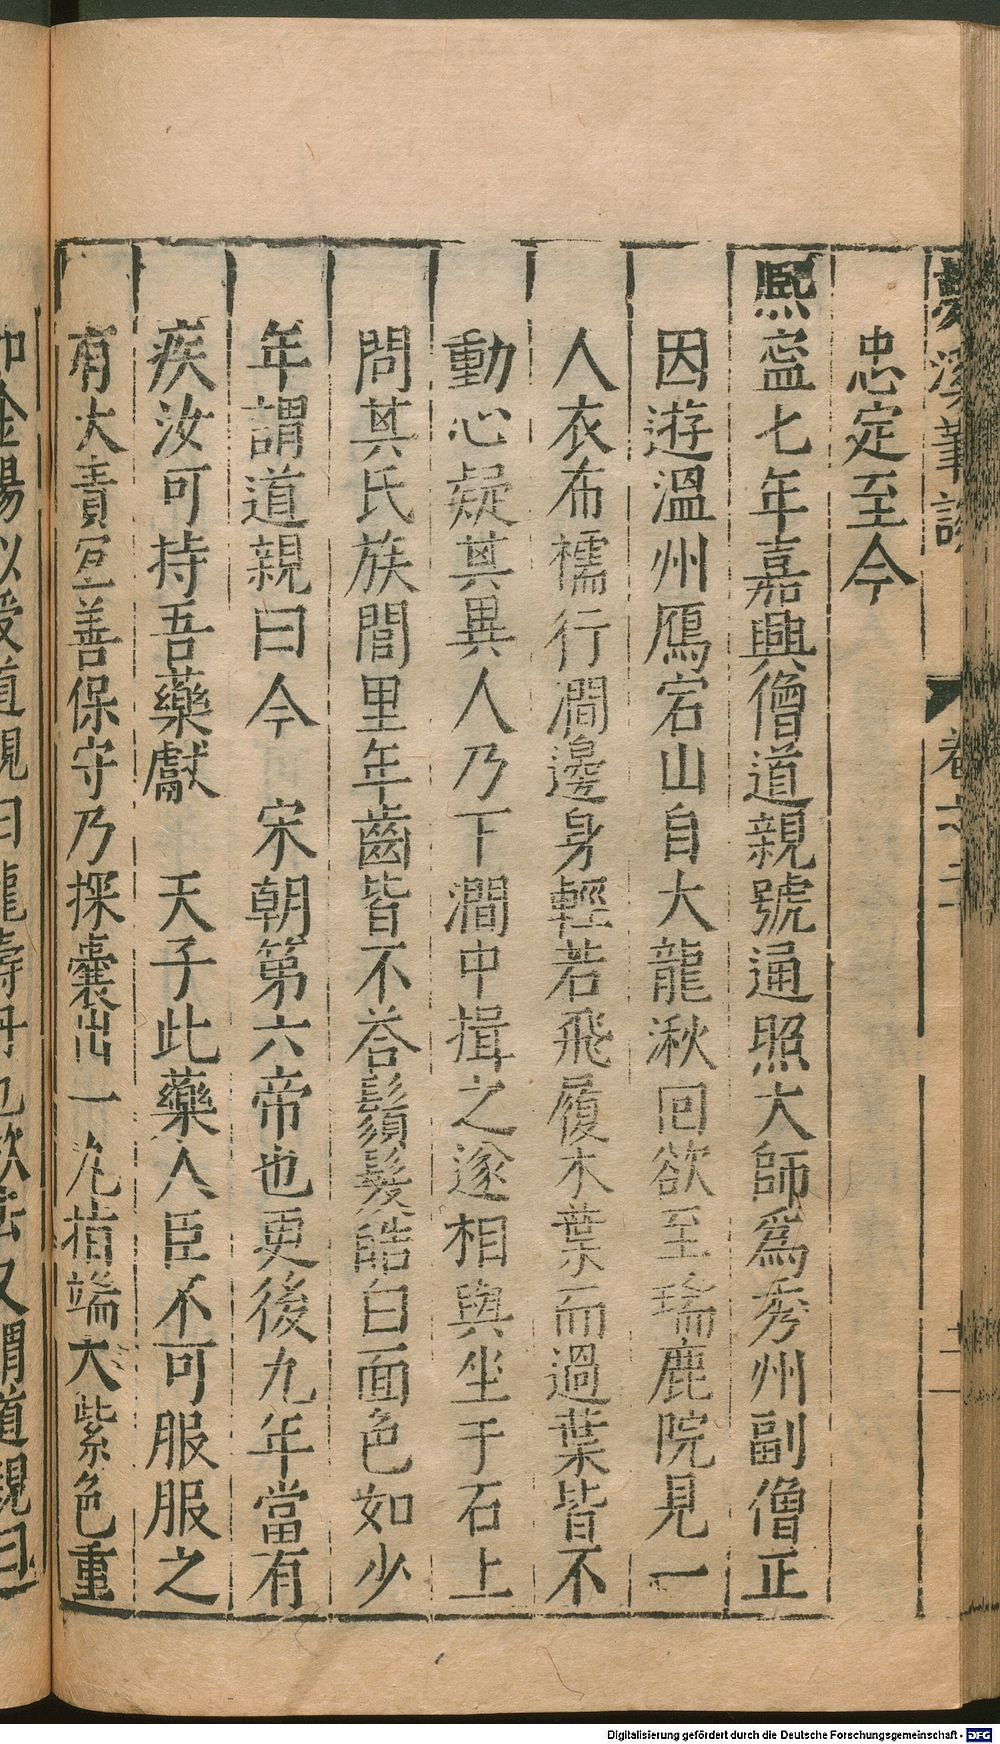 夢溪筆談 卷二十 十一
忠定至今
熈寍七年嘉興僧道親號通照大師爲秀州副僧正
因遊溫州鴈宕山自大龍湫回欲至瑞鹿院見一
人衣布襦行澗邊身輕若飛履木葉而過葉皆不
動心疑其異人乃下澗中揖之遂相與坐于石上
問其氏族閭里年齒皆不荅鬚髮皓白面色如少
年謂道親曰今 宋朝第六帝也更後九年當有
疾汝可持吾藥獻 天子此藥人臣不可服服之
有大責宜善保守乃探囊出一丸指端大紫色重
金錫以授道親曰龍壽丹也欲去又謂道親曰
Digitalisierung gefördert durch die Deutsche Forschungsgemeinschaft - DFG